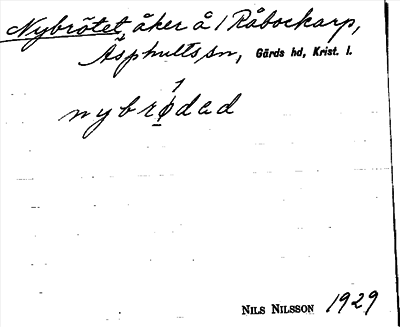 Nybrötet, åker å 1 Råbockarp,
Äsphults sn, Gärds hd, Krist. l.
nybrødad
Nils Nilsson 1929